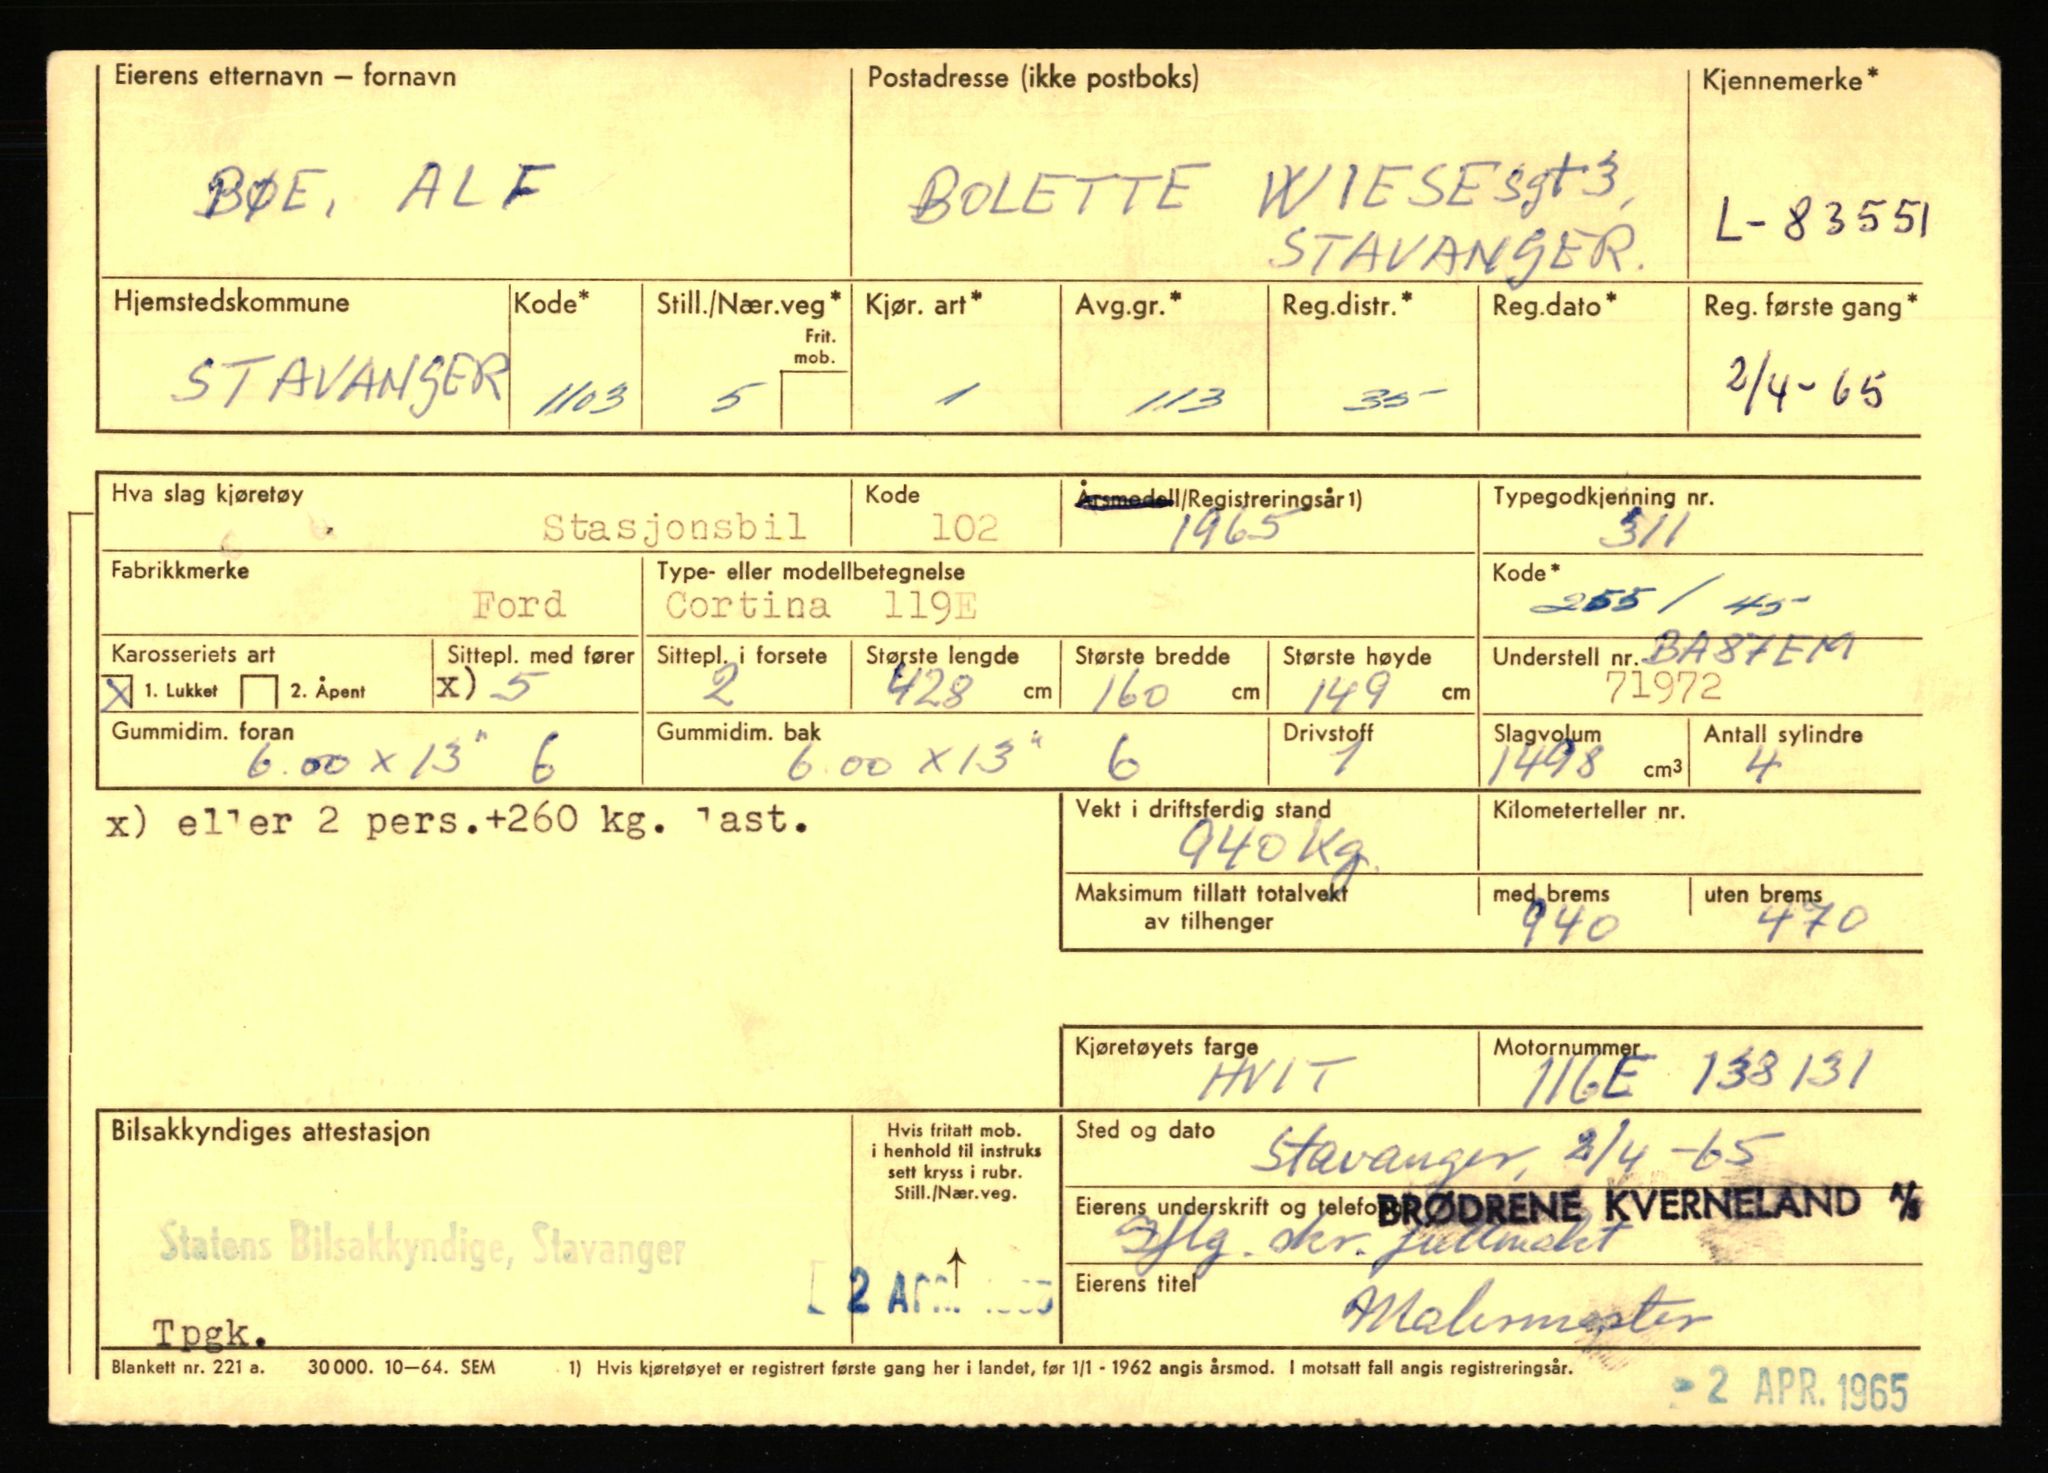 Eierens etternavn – fornavn
BØE, ALF
Postadresse (ikke postboks)
BOLETTE WIESESgt 3,
STAVANGER.
Kjennemerke*
L-83551
Hjemstedskommune
STAVANGER
Kode*
1103
Still./Nær.veg*
Frit.
mob.
5
Kjør. art*
1
Avg.gr.*
113
Reg.distr.*
35
Reg.dato*
Reg. første gang*
2/4-65
Hva slag kjøretøy
Stasjonsbil
Kode
102
Årsmodell/Registreringsår 1)
1965
Typegodkjenning nr.
311
Fabrikkmerke
Ford
Type- eller modellbetegnelse
Cortina 119E
Kode*
255 / 45
Karosseriets art
X 1. Lukket 2. Åpent
Sittepl. med fører
x) 5
Sittepl. i forsete
2
Største lengde
428 cm
Største bredde
160 cm
Største høyde
149 cm
Understell nr. BA87EM
71972
Gummidim. foran
6.00 x 13" 6
Gummidim. bak
6.00 x 13" 6
Drivstoff
1
Slagvolum
1498 cm³
Antall sylindre
4
x) eller 2 pers.+260 kg. last.
Vekt i driftsferdig stand
940 Kg.
Kilometerteller nr.
Maksimum tillatt totalvekt
av tilhenger
med brems
940
uten brems
470
Kjøretøyets farge
HVIT
Motornummer
116E 138131
Bilsakkyndiges attestasjon
Statens Bilsakkyndige, Stavanger
Tpgk.
Hvis fritatt mob.
i henhold til instruks
sett kryss i rubr.
Still./Nær.veg.
2 APR. 1965
Sted og dato
Stavanger, 2/4-65
Eierens underskrift og telefon
BRØDRENE KVERNELAND A/S
Iflg. skr. fullmakt
Eierens titel
Malermester
Blankett nr. 221 a. 30 000. 10–64. SEM
1) Hvis kjøretøyet er registrert første gang her i landet, før 1/1 - 1962 angis årsmod. I motsatt fall angis registreringsår.
2 APR. 1965